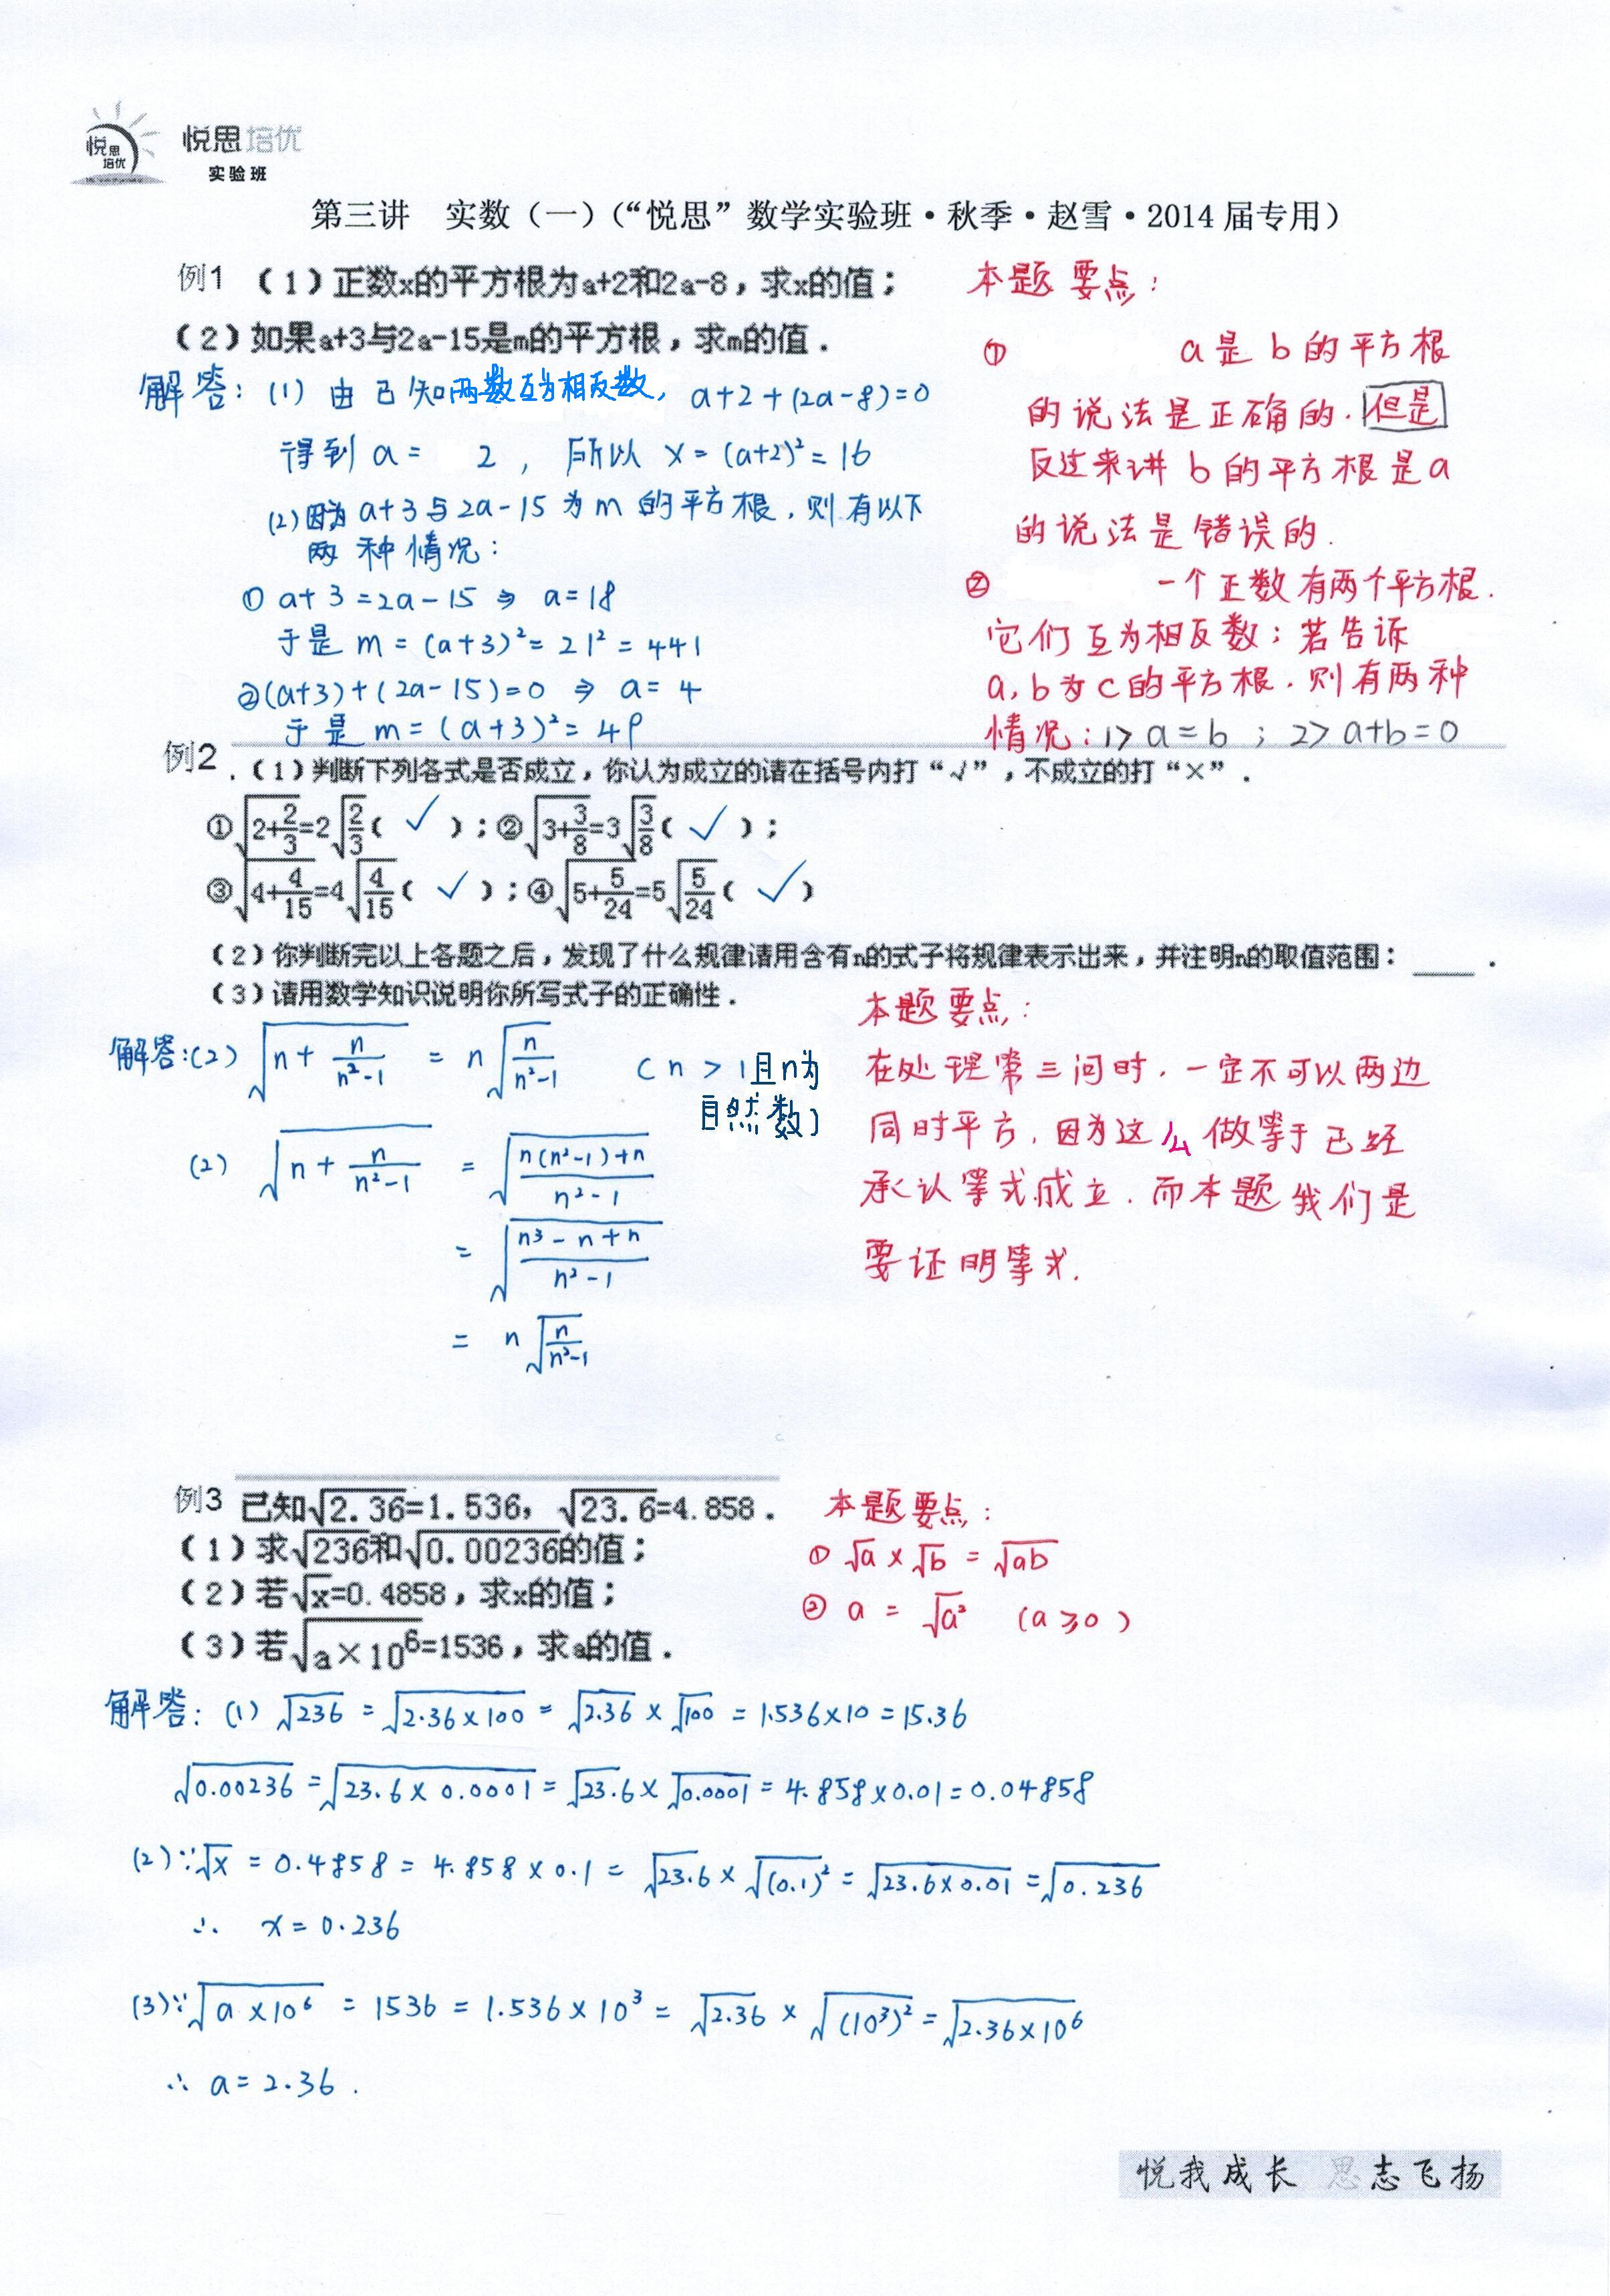 悦思培优
悦思培优
实验班
第三讲 实数（一）（“悦思”数学实验班·秋季·赵雪·2014届专用）
例1 （1）正数x的平方根为a+2和2a-8，求x的值；
（2）如果a+3与2a-15是m的平方根，求m的值．
解答：(1) 由已知两数互为相反数, a+2+(2a-8)=0
得到 a= 2 , 所以 x=(a+2)²=16
(2)因为 a+3与2a-15为m的平方根, 则有以下
两种情况：
① a+3=2a-15 ⇒ a=18
于是 m=(a+3)²=21²=441
②(a+3)+(2a-15)=0 ⇒ a=4
于是 m=(a+3)²=49
本题要点：
① a是b的平方根
的说法是正确的. 但是
反过来讲 b的平方根是a
的说法是错误的.
② 一个正数有两个平方根.
它们互为相反数；若告诉
a,b为c的平方根. 则有两种
情况：1> a=b ；2> a+b=0
例2 .（1）判断下列各式是否成立，你认为成立的请在括号内打“√”，不成立的打“×”．
①√(2+2/3)=2√(2/3)( ✓ )；②√(3+3/8)=3√(3/8)( ✓ )；
③√(4+4/15)=4√(4/15)( ✓ )；④√(5+5/24)=5√(5/24)( ✓ )
（2）你判断完以上各题之后，发现了什么规律请用含有n的式子将规律表示出来，并注明n的取值范围：____．
（3）请用数学知识说明你所写式子的正确性．
解答:(2) √(n+n/(n²-1)) = n√(n/(n²-1)) (n>1且n为
自然数)
(2) √(n+n/(n²-1)) = √((n(n²-1)+n)/(n²-1))
= √((n³-n+n)/(n²-1))
= n√(n/(n²-1))
本题要点：
在处理第三问时. 一定不可以两边
同时平方. 因为这么做等于已经
承认等式成立. 而本题我们是
要证明等式.
例3 已知√2.36=1.536，√23.6=4.858．
（1）求√236和√0.00236的值；
（2）若√x=0.4858，求x的值；
（3）若√(a×10⁶)=1536，求a的值．
本题要点：
① √a×√b=√ab
② a=√a² (a≥0)
解答：(1) √236=√(2.36×100)=√2.36×√100=1.536×10=15.36
√0.00236=√(23.6×0.0001)=√23.6×√0.0001=4.858×0.01=0.04858
(2)∵√x=0.4858=4.858×0.1=√23.6×√(0.1)²=√(23.6×0.01)=√0.236
∴ x=0.236
(3)∵√(a×10⁶)=1536=1.536×10³=√2.36×√(10³)²=√(2.36×10⁶)
∴ a=2.36.
悦我成长 思志飞扬